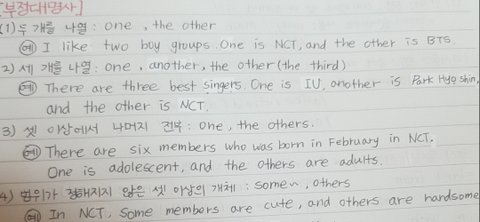 [부정대명사]
(1) 두 개를 나열 : one , the other
예) I like two boy groups. One is NCT, and the other is BTS.
2) 세 개를 나열 : one, another, the other (the third)
예) There are three best singers. One is IU, another is Park Hyo shin,
and the other is NCT.
3) 셋 이상에서 나머지 전부 : one, the others.
예) There are six members who was born in February in NCT.
One is adolescent, and the others are adults.
4) 범위가 정해지지 않은 셋 이상의 개체 : some~, others
예) In NCT, Some members are cute, and others are handsome